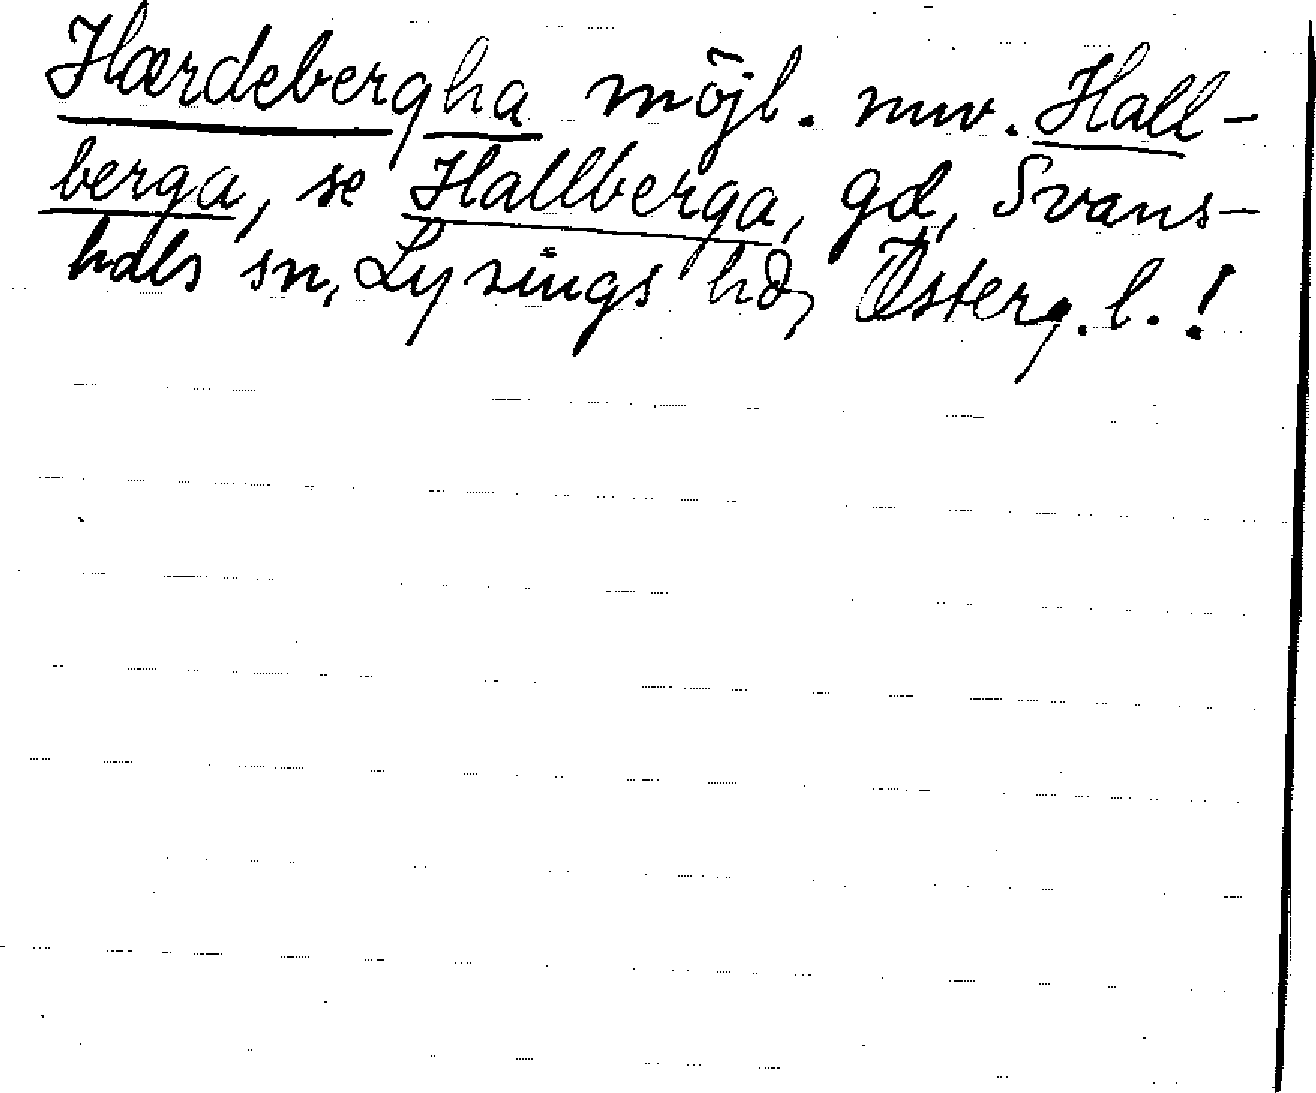 Hærdebergha möjl. nuv. Hall-
berga, se Hallberga, gd, Svans-
hals sn, Lysings hd, Österg. l. !